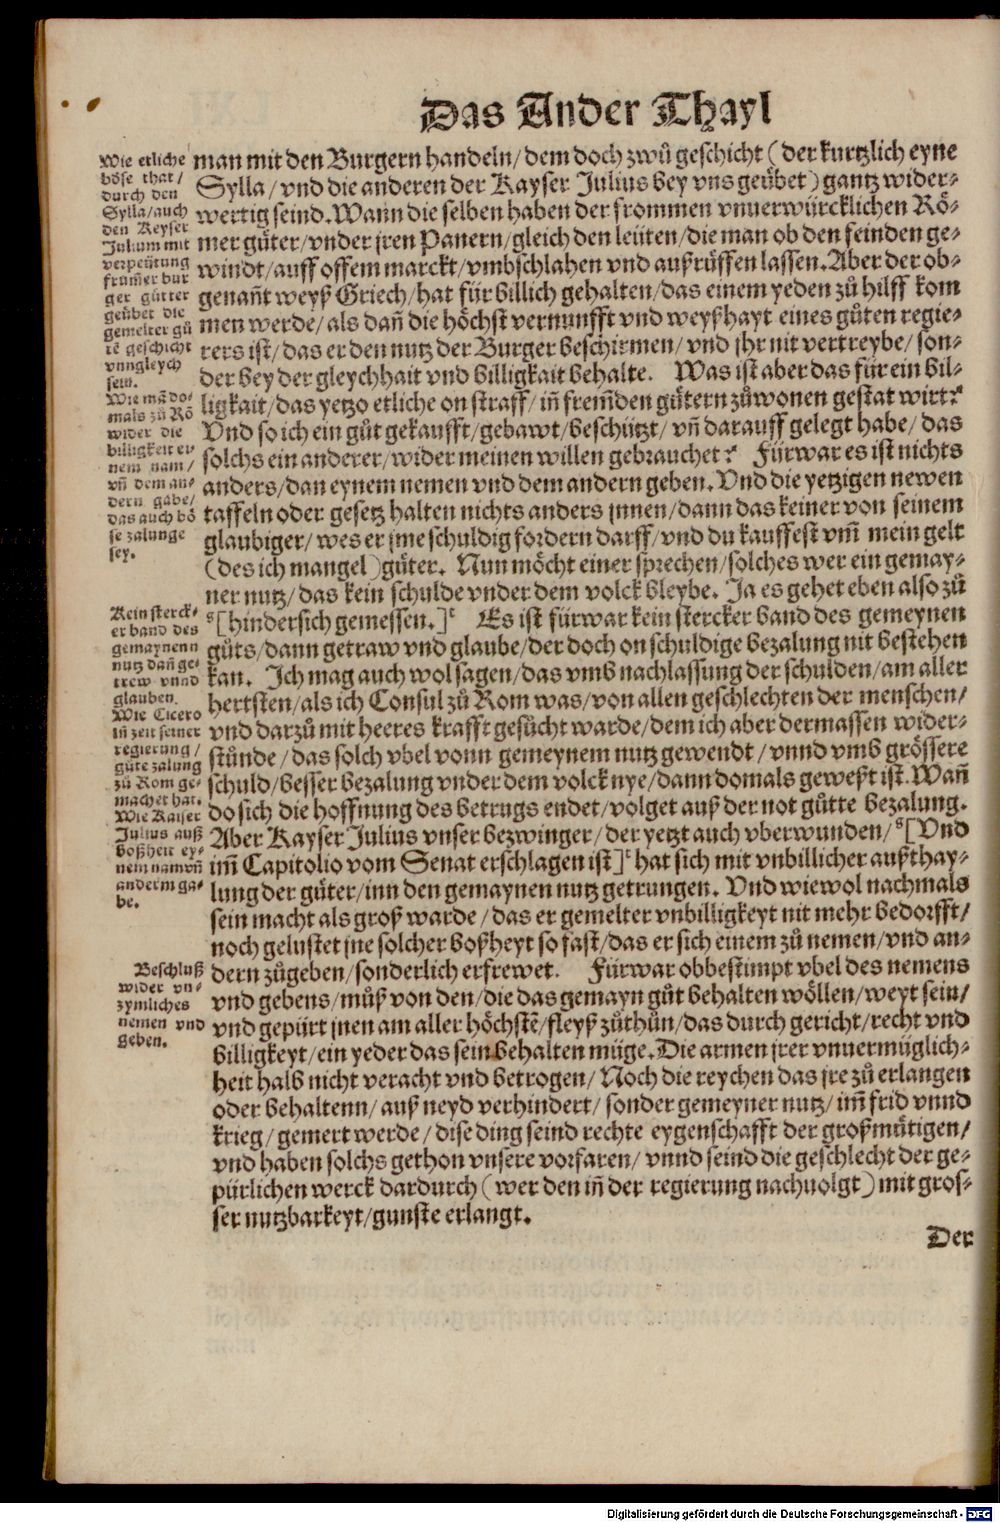 Das Ander Thayl
Wie etliche
böse that/
durch den
Sylla/auch
den Keyser
Julium mit
verpeütung
frum̃er bur
ger gütter
geübet die
gemelter gů
tẽ geschicht
vnngleych
sein.
Wie mã do-
mals zů Rö
wider die
billigkeit ei
nem nam/
vñ dem an-
dern gabe/
das auch bö
se zalunge
sey.
Kein sterck-
er band des
gemaynenn
nutz dañ ge-
trew vnnd
glauben.
Wie Cicero
iñ zeit seiner
regierung/
gůte zalung
zů Rom ge-
machet hat.
Wie Kaiser
Julius auß
boßheit ey-
nem nam vñ
anderm ga-
be.
Beschluß
wider vn-
zymliches
nemen vnd
geben.
man mit den Burgern handeln/dem doch zwů geschicht (der kurtzlich eyne
Sylla/vnd die anderen der Kayser Julius bey vns geübet) gantz wider-
wertig seind. Wann die selben haben der frommen vnuerwürcklichen Rö-
mer güter/vnder jren Panern/gleich den leüten/die man ob den feinden ge-
windt/auff offem marckt/vmbschlahen vnd außrüffen lassen. Aber der ob-
genañt weyß Griech/hat für billich gehalten/das einem yeden zů hilff kom
men werde/als dañ die höchst vernunfft vnd weyßhayt eines gůten regie-
rers ist/das er den nutz der Burger beschirmen/vnd jhr nit vertreybe/son-
der bey der gleychhait vnd billigkait behalte. Was ist aber das für ein bil-
ligkait/das yetzo etliche on straff/iñ frem̃den gütern zůwonen gestat wirt?
Vnd so ich ein gůt gekaufft/gebawt/beschützt/vñ darauff gelegt habe/das
solchs ein anderer/wider meinen willen gebrauchet? Fürwar es ist nichts
anders/dan eynem nemen vnd dem andern geben. Vnd die yetzigen newen
taffeln oder gesetz halten nichts anders jnnen/dann das keiner von seinem
glaubiger/wes er jme schuldig fordern darff/vnd du kauffest vm̃ mein gelt
(des ich mangel) güter. Nun möcht einer sprechen/solches wer ein gemay-
ner nutz/das kein schulde vnder dem volck bleybe. Ja es gehet eben also zů
ˢ[hindersich gemessen.]ᵗ Es ist fürwar kein stercker band des gemeynen
gůts/dann getraw vnd glaube/der doch on schuldige bezalung nit bestehen
kan. Ich mag auch wol sagen/das vmb nachlassung der schulden/am aller
hertsten/als ich Consul zů Rom was/von allen geschlechten der menschen/
vnd darzů mit heeres krafft gesůcht warde/dem ich aber dermassen wider-
stůnde/das solch vbel vonn gemeynem nutz gewendt/vnnd vmb grössere
schuld/besser bezalung vnder dem volck nye/dann domals geweßt ist. Wañ
do sich die hoffnung des betrugs endet/volget auß der not gůtte bezalung.
Aber Kayser Julius vnser bezwinger/der yetzt auch vberwunden/ˢ[Vnd
im̃ Capitolio vom Senat erschlagen ist]ᵗ hat sich mit vnbillicher außthay-
lung der güter/inn den gemaynen nutz getrungen. Vnd wiewol nachmals
sein macht als groß warde/das er gemelter vnbilligkeyt nit mehr bedorfft/
noch gelustet jne solcher boßheyt so fast/das er sich einem zů nemen/vnd an-
dern zůgeben/sonderlich erfrewet. Fürwar obbestimpt vbel des nemens
vnd gebens/můß von den/die das gemayn gůt behalten wöllen/weyt sein/
vnd gepürt jnen am aller höchstẽ/fleyß zůthůn/das durch gericht/recht vnd
billigkeyt/ein yeder das sein behalten müge. Die armen jrer vnuermüglich-
heit halb nicht veracht vnd betrogen/Noch die reychen das jre zů erlangen
oder behaltenn/auß neyd verhindert/sonder gemeyner nutz/im̃ frid vnnd
krieg/gemert werde/dise ding seind rechte eygenschafft der großmütigen/
vnd haben solchs gethon vnsere vorfaren/vnnd seind die geschlecht der ge-
pürlichen werck dardurch (wer den iñ der regierung nachuolgt) mit gros-
ser nutzbarkeyt/gunste erlangt.
Der
Digitalisierung gefördert durch die Deutsche Forschungsgemeinschaft - DFG